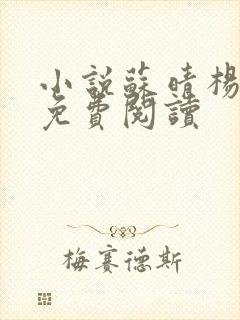 小説蘇晴楊
免費閱讀
梅賽德斯